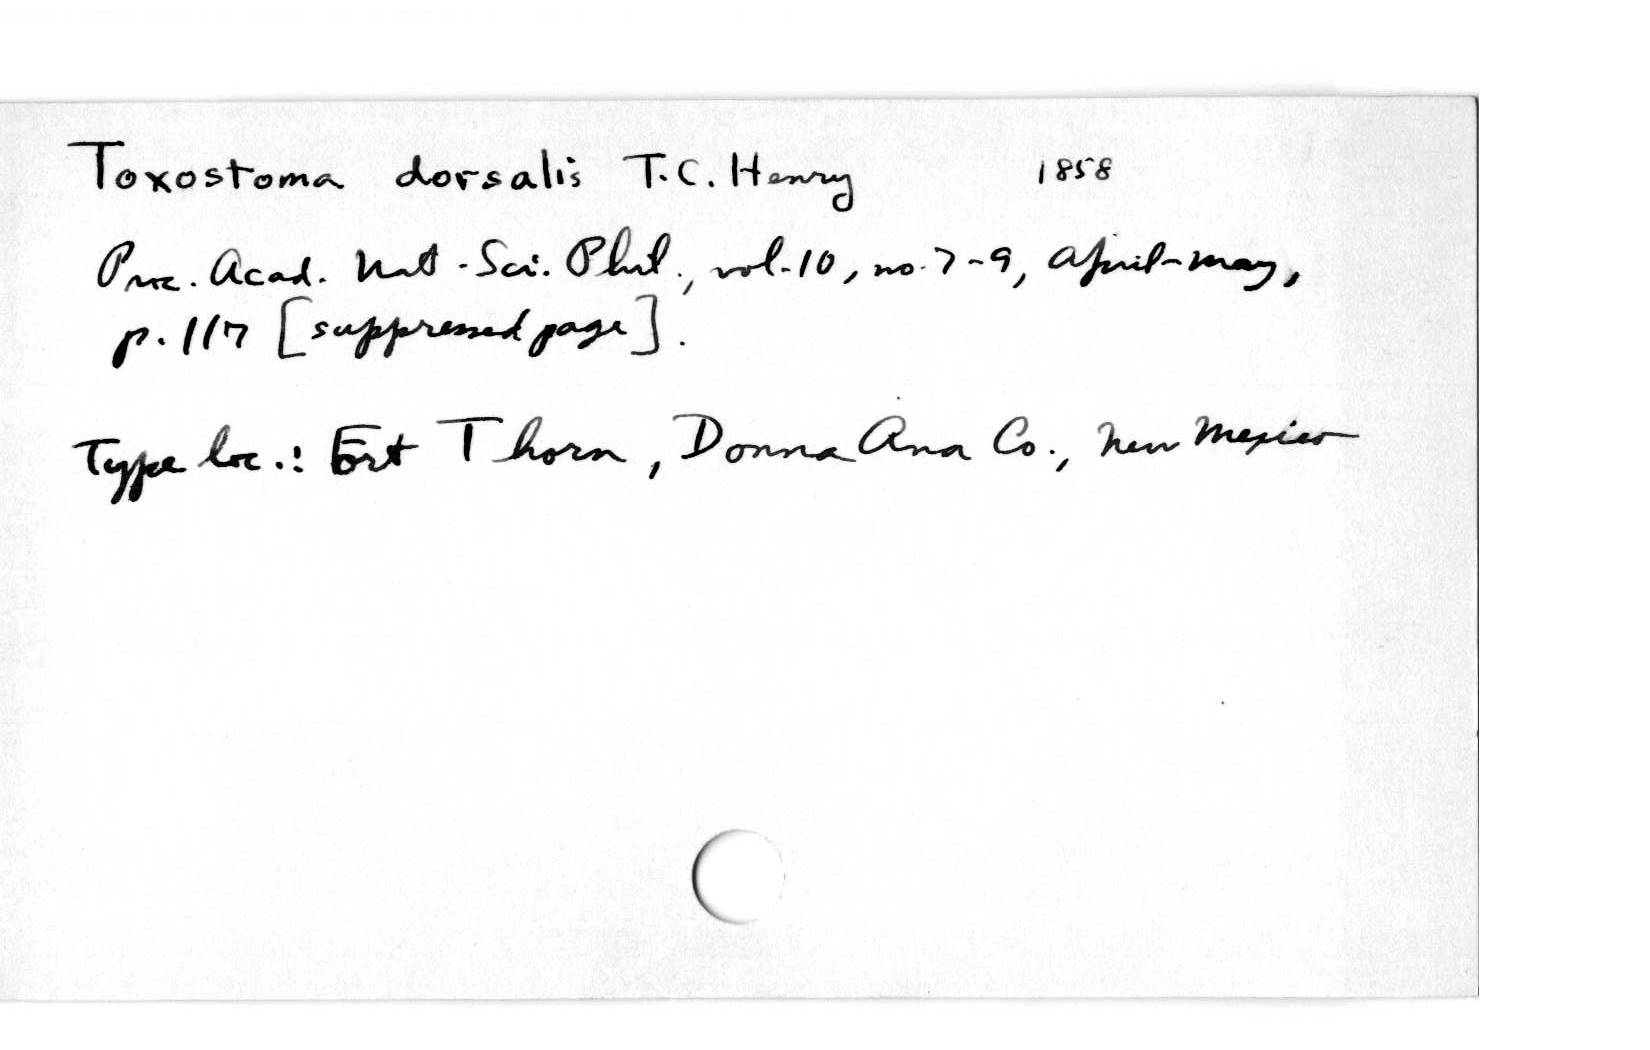 Toxostoma dorsalis T.C. Henry 1858
Proc. Acad. Nat. Sci. Phil., vol. 10, no. 7-9, April-May,
p. 117 [suppressed page].
Type loc.: Fort Thorn, Donna Ana Co., New Mexico